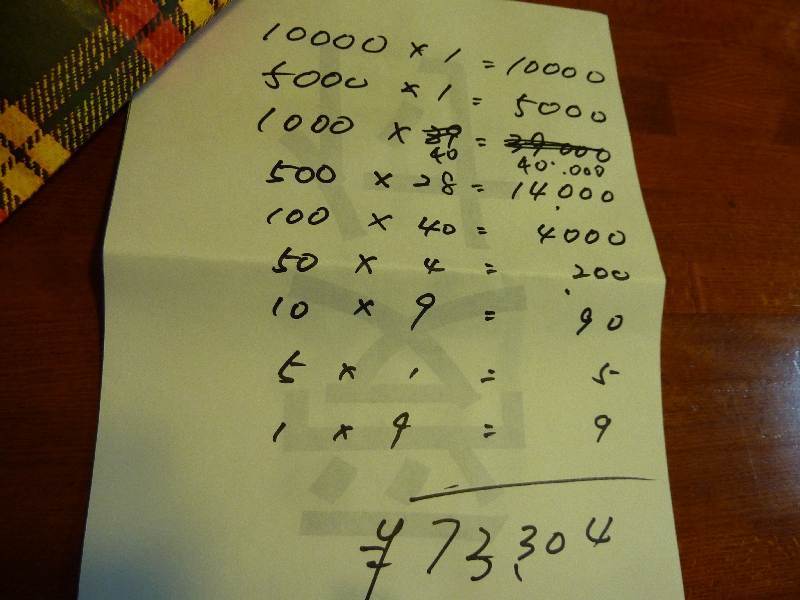 10000 × 1 = 10000
5000 × 1 = 5000
1000 × 39 = 39000
40 40.000
500 × 28 = 14,000
100 × 40 = 4000
50 × 4 = 200
10 × 9 = 90
5 × 1 = 5
1 × 9 = 9
¥73,304